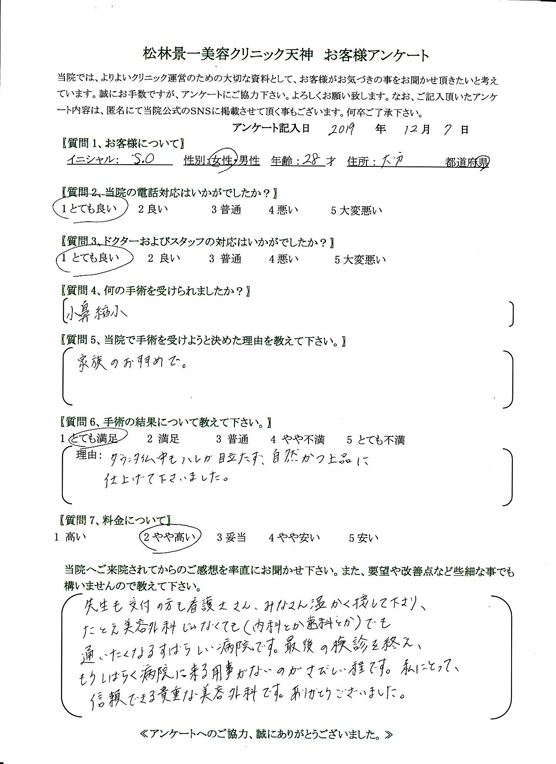 松林景一美容クリニック天神　お客様アンケート
当院では、よりよいクリニック運営のための大切な資料として、お客様がお気づきの事をお聞かせ頂きたいと考え
ています。誠にお手数ですが、アンケートにご協力下さい。よろしくお願い致します。なお、ご記入頂いたアンケ
ート内容は、匿名にて当院公式のSNSに掲載させて頂く事もございます。何卒ご了承下さい。
アンケート記入日　2019　年　12月　7　日
〖質問1、お客様について〗
イニシャル：　S.O　性別：女性・男性　年齢：28才　住所：大分　都道府県
〖質問2、当院の電話対応はいかがでしたか？〗
1とても良い　2良い　3普通　4悪い　5大変悪い
〖質問3、ドクターおよびスタッフの対応はいかがでしたか？〗
1とても良い　2 良い　3 普通　4悪い　5大変悪い
〖質問4、何の手術を受けられましたか？〗
小鼻縮小
〖質問5、当院で手術を受けようと決めた理由を教えて下さい。〗
家族のおすすめで。
〖質問6、手術の結果について教えて下さい。〗
1とても満足　2 満足　3 普通　4 やや不満　5 とても不満
理由：ダウンタイム中もハレが目立たず、自然かつ上品に
仕上げて下さいました。
〖質問7、料金について〗
1 高い　2やや高い　3妥当　4やや安い　5安い
当院へご来院されてからのご感想を率直にお聞かせ下さい。また、要望や改善点など些細な事でも
構いませんので教えて下さい。
先生も受付の方も看護士さん、みなさん温かく接して下さり、
たとえ美容外科じゃなくても(内科とか歯科とか)でも
通いたくなるすばらしい病院です。最後の検診を終え、
もうしばらく病院に来る用事がないのがさびしい程です。私にとって、
信頼できる貴重な美容外科です。ありがとうございました。
≪アンケートへのご協力、誠にありがとうございました。≫